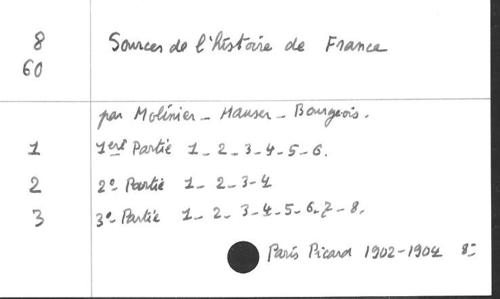 8 Sources de l'histoire de France
60
par Molinier - Hauser - Bourgeois.
1 1ere Partie 1 - 2 - 3 - 4 - 5 - 6.
2 2e Partie 1 - 2 - 3 - 4
3 3e Partie 1 - 2 - 3 - 4 - 5 - 6 - 7 - 8.
Paris Picard 1902-1904 8=